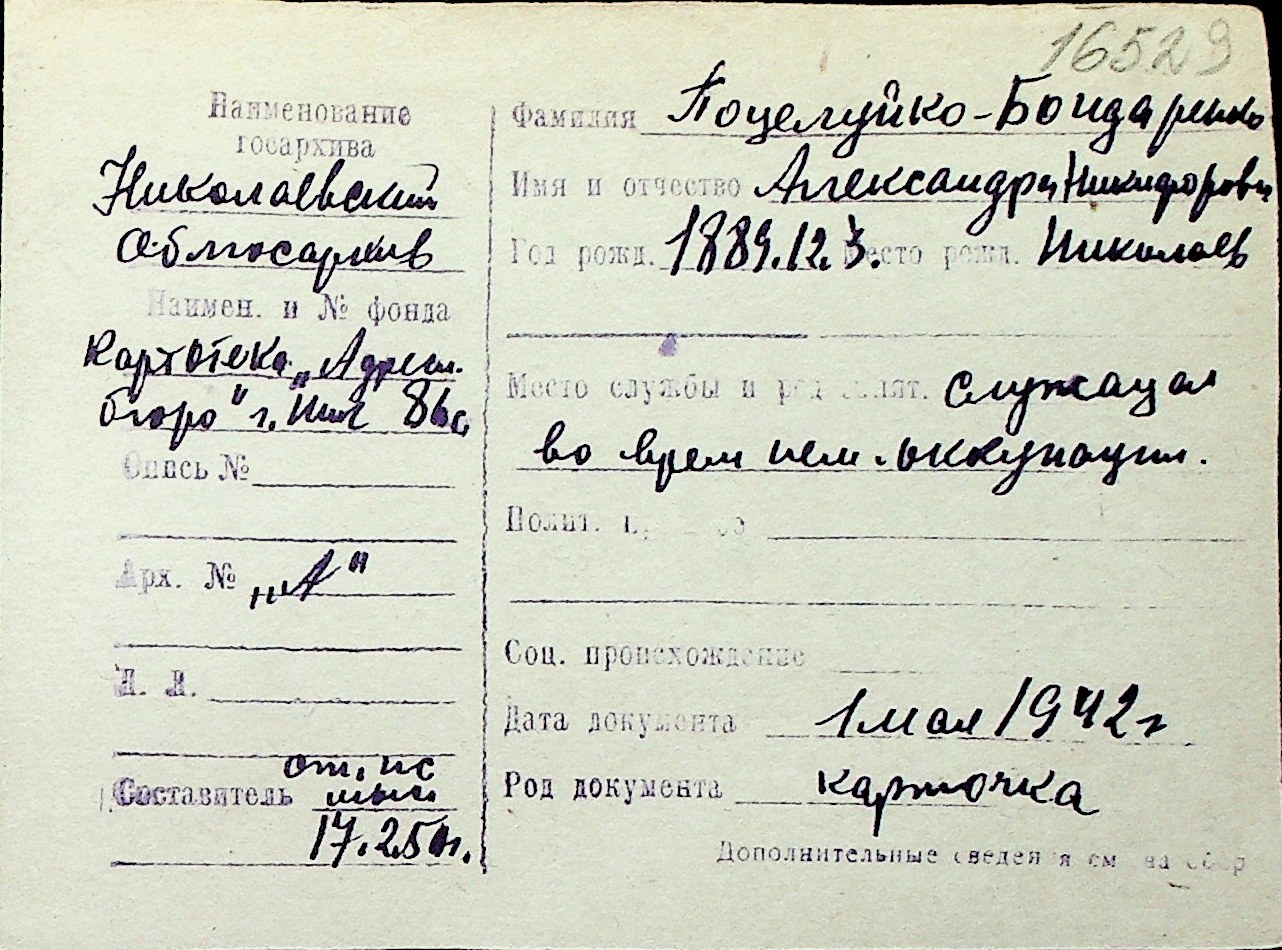 16529
Наименование
госархива
Николаевский
Облгосархив
Наимен. и № фонда
Картотека „Адресн.
бюро" г. Ник
Опись №
Арх. № „А"
Л. Л.
Составитель
17.2.50г.
Фамилия Поцелуйко-Бондаренко
Имя и отчество Александра Никифоровн
Год рожд. 1889.12.3. Место рожд. Николаев
Место службы и род занят. служащая
во врем нем. оккупации.
Полит.
Соц. происхождение
Дата документа 1 мая 1942 г
Род документа карточка
Дополнительные сведения см на обор